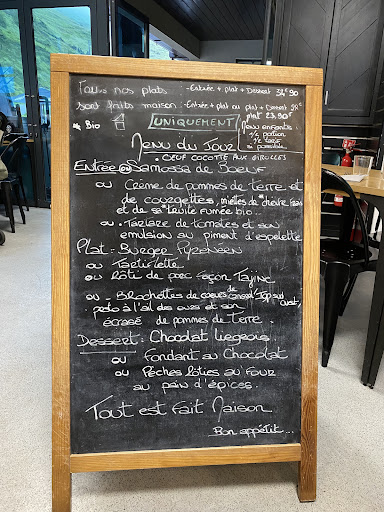 Tous nos plats - Entrée + plat + Dessert 32€90
sont faits maison - Entrée + plat ou plat + Dessert 28€
* Bio UNIQUEMENT plat 23,90€
Menu enfants
1/2 portion
1/2 tarif
si possible
Menu du Jour
. OEUF COCOTTE AUX GIROLLES
Entrée ou Samossa de Boeuf
ou Crème de pommes de terre et
de courgettes, miettes de chèvre frais
et de sa truite fumée bio.
ou . Tartare de tomates et son
émulsion au piment d'espelette
Plat : Burger Pyrénéen
ou Tartiflette
ou Rôti de porc façon Tajine
ou - Brochettes de coeurs de canard IGP sud ouest,
pesto à l'ail des ours et son
écrasé de pommes de terre.
Dessert : Chocolat liégeois
ou Fondant au Chocolat
ou Pêches rôties au four
au pain d'épices.
Tout est fait Maison
Bon appétit...